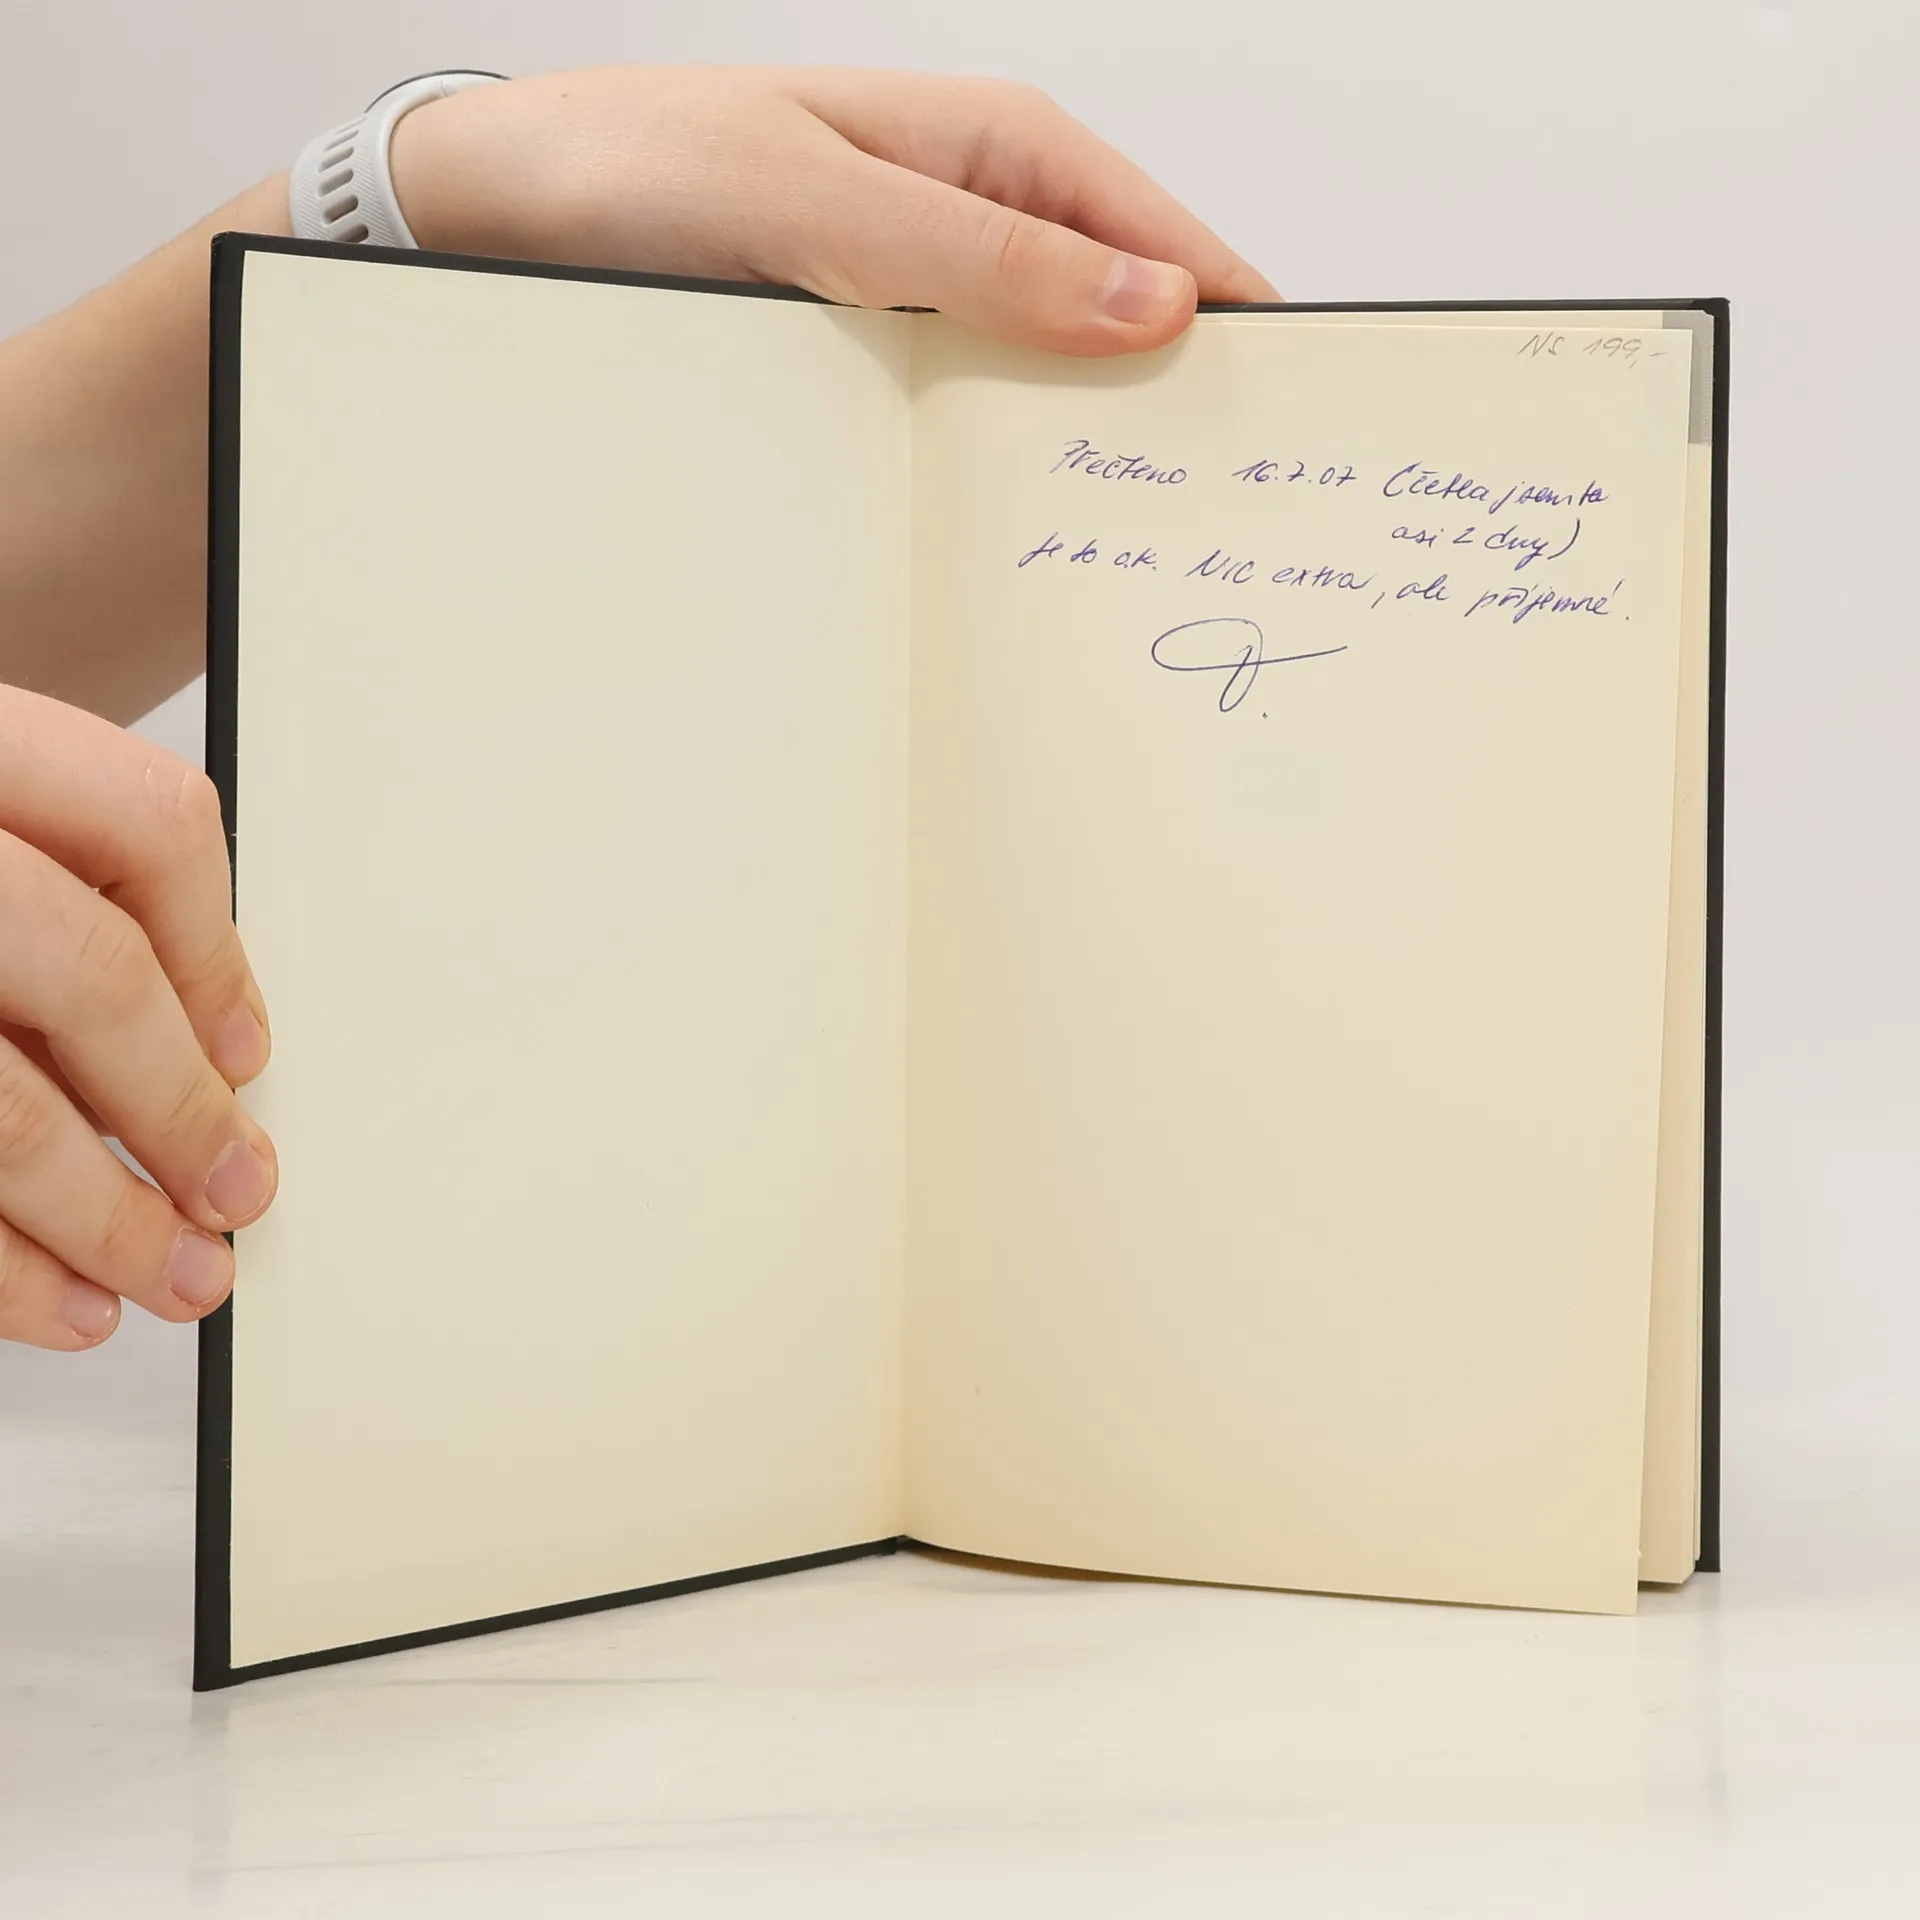 NS 199,-
Přečteno 16.7.07 (četla jsem to
asi 2 dny)
je to o.k. NIC extra, ale příjemné.